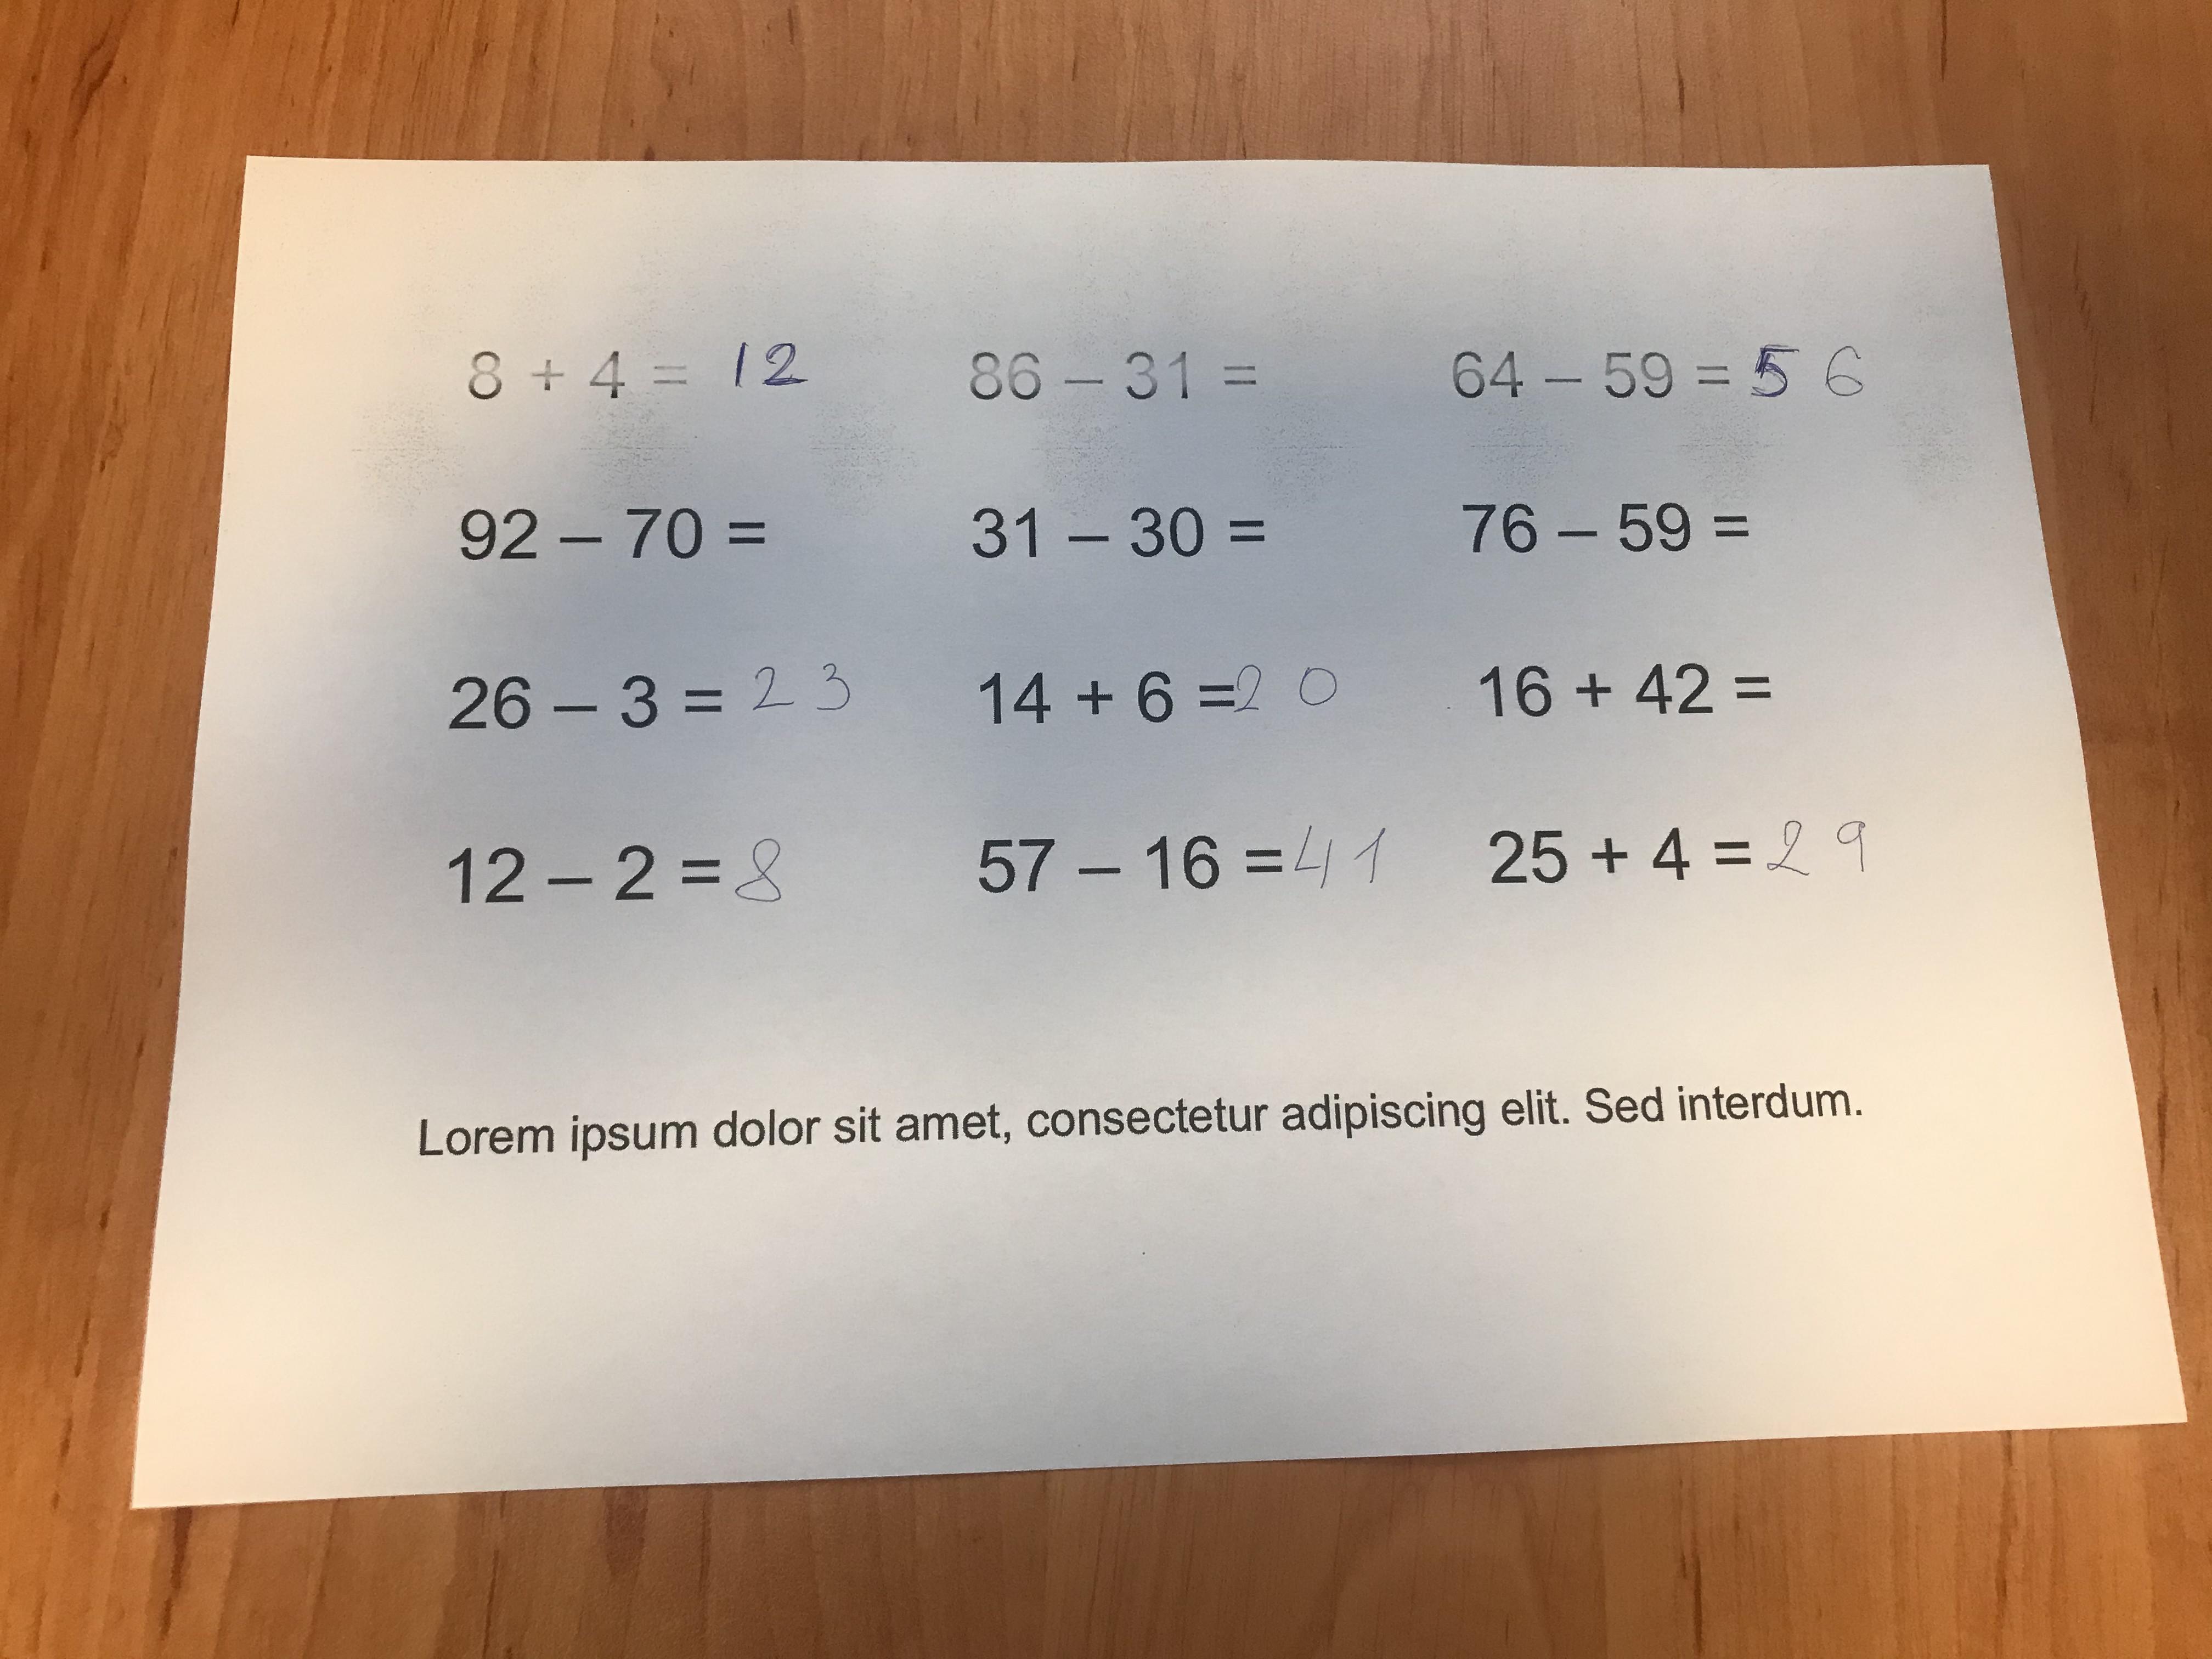 8 + 4 = 12 86 – 31 = 64 – 59 = 5 6
92 – 70 = 31 – 30 = 76 – 59 =
26 – 3 = 23 14 + 6 = 20 16 + 42 =
12 – 2 = 8 57 – 16 = 41 25 + 4 = 29
Lorem ipsum dolor sit amet, consectetur adipiscing elit. Sed interdum.